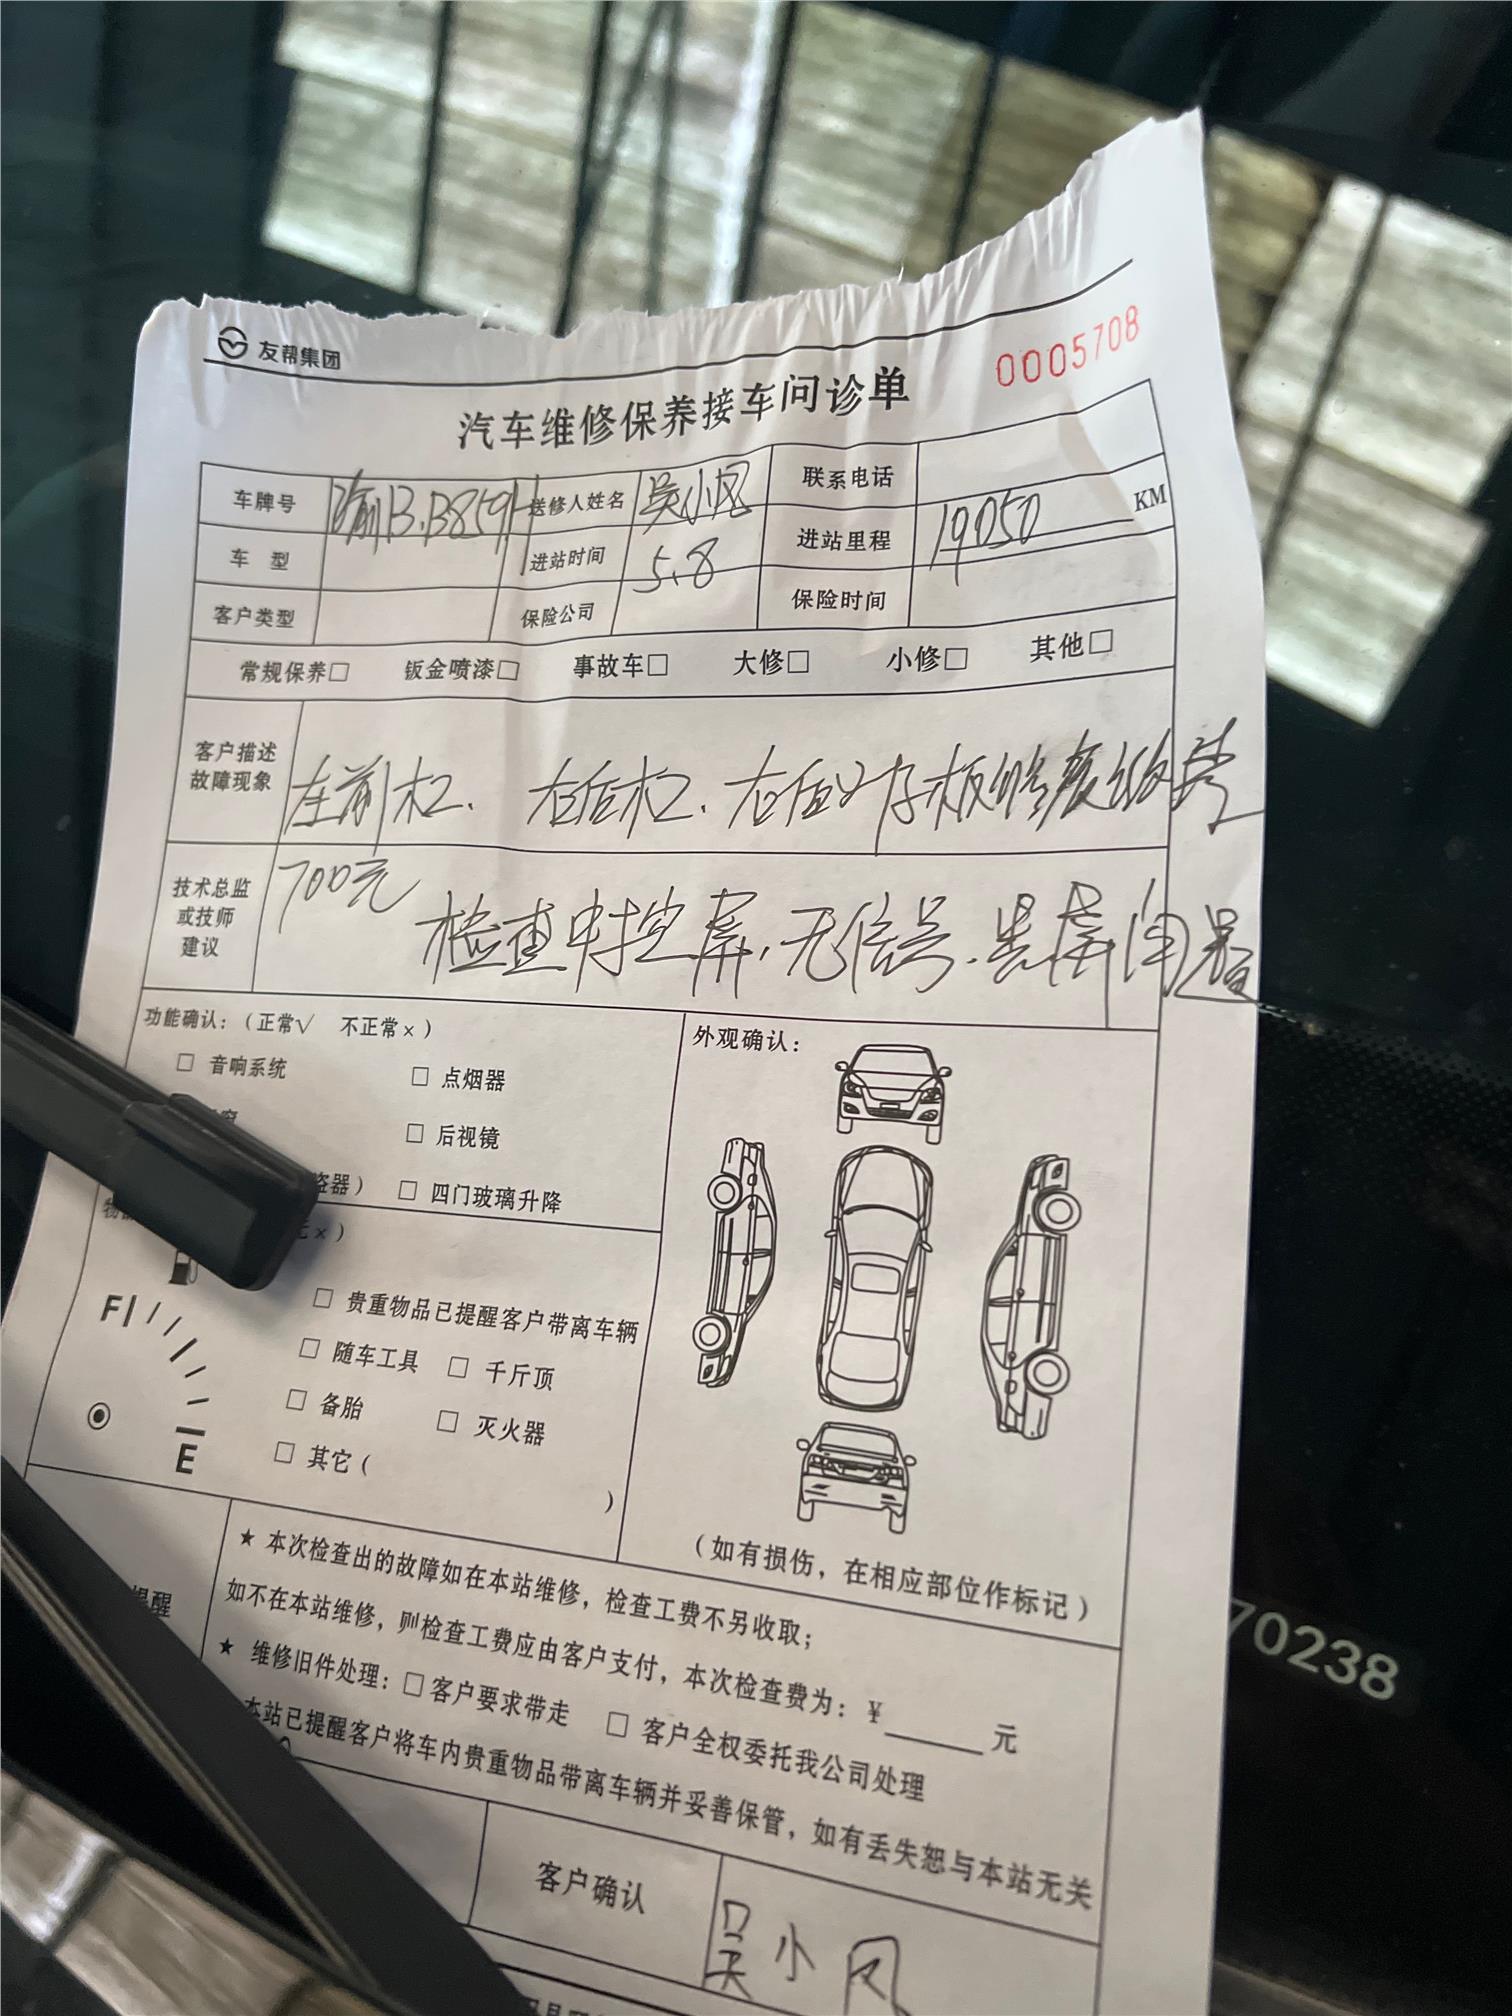 友帮集团
0005708
汽车维修保养接车问诊单
车牌号 渝B.B859H 送修人姓名 吴小凤 联系电话
车 型 进站时间 5.8 进站里程 19050 KM
客户类型 保险公司 保险时间
常规保养□ 钣金喷漆□ 事故车□ 大修□ 小修□ 其他□
客户描述
故障现象
左前杠、右后杠、右后叶子板修复
700元
技术总监
或技师
建议
检查中控屏,无信号、黑屏问题
功能确认:(正常√ 不正常×)
□ 音响系统 □ 点烟器
□ 后视镜
盗器) □ 四门玻璃升降
×)
F
E
□ 贵重物品已提醒客户带离车辆
□ 随车工具 □ 千斤顶
□ 备胎 □ 灭火器
□ 其它( )
外观确认:
(如有损伤,在相应部位作标记)
提醒
★ 本次检查出的故障如在本站维修,检查工费不另收取;
如不在本站维修,则检查工费应由客户支付,本次检查费为:¥______元
★ 维修旧件处理:□客户要求带走 □ 客户全权委托我公司处理
本站已提醒客户将车内贵重物品带离车辆并妥善保管,如有丢失恕与本站无关
客户确认 吴小凤
70238